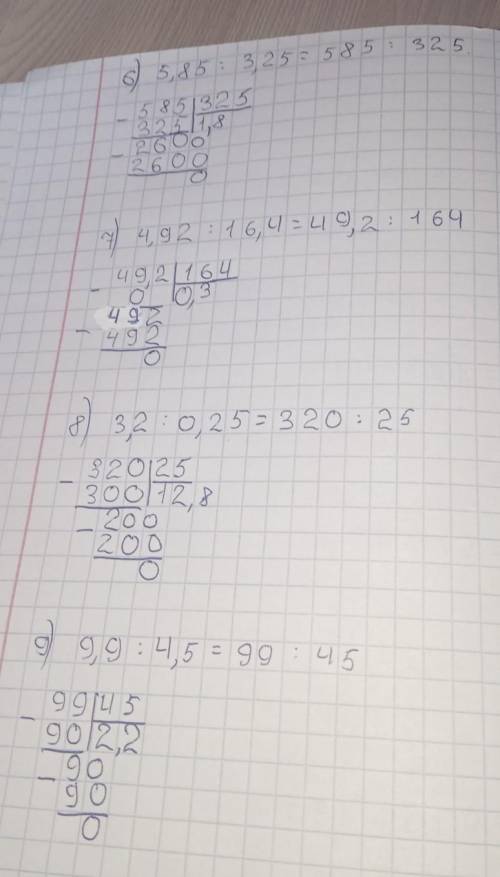 6) 5,85 : 3,25 = 585 : 325
- 585 | 325
325 | 1,8
- 2600
2600
0
7) 4,92 : 16,4 = 49,2 : 164
- 49,2 | 164
0 | 0,3
- 492
492
0
8) 3,2 : 0,25 = 320 : 25
- 320 | 25
300 | 12,8
- 200
200
0
9) 9,9 : 4,5 = 99 : 45
- 99 | 45
90 | 2,2
- 90
90
0